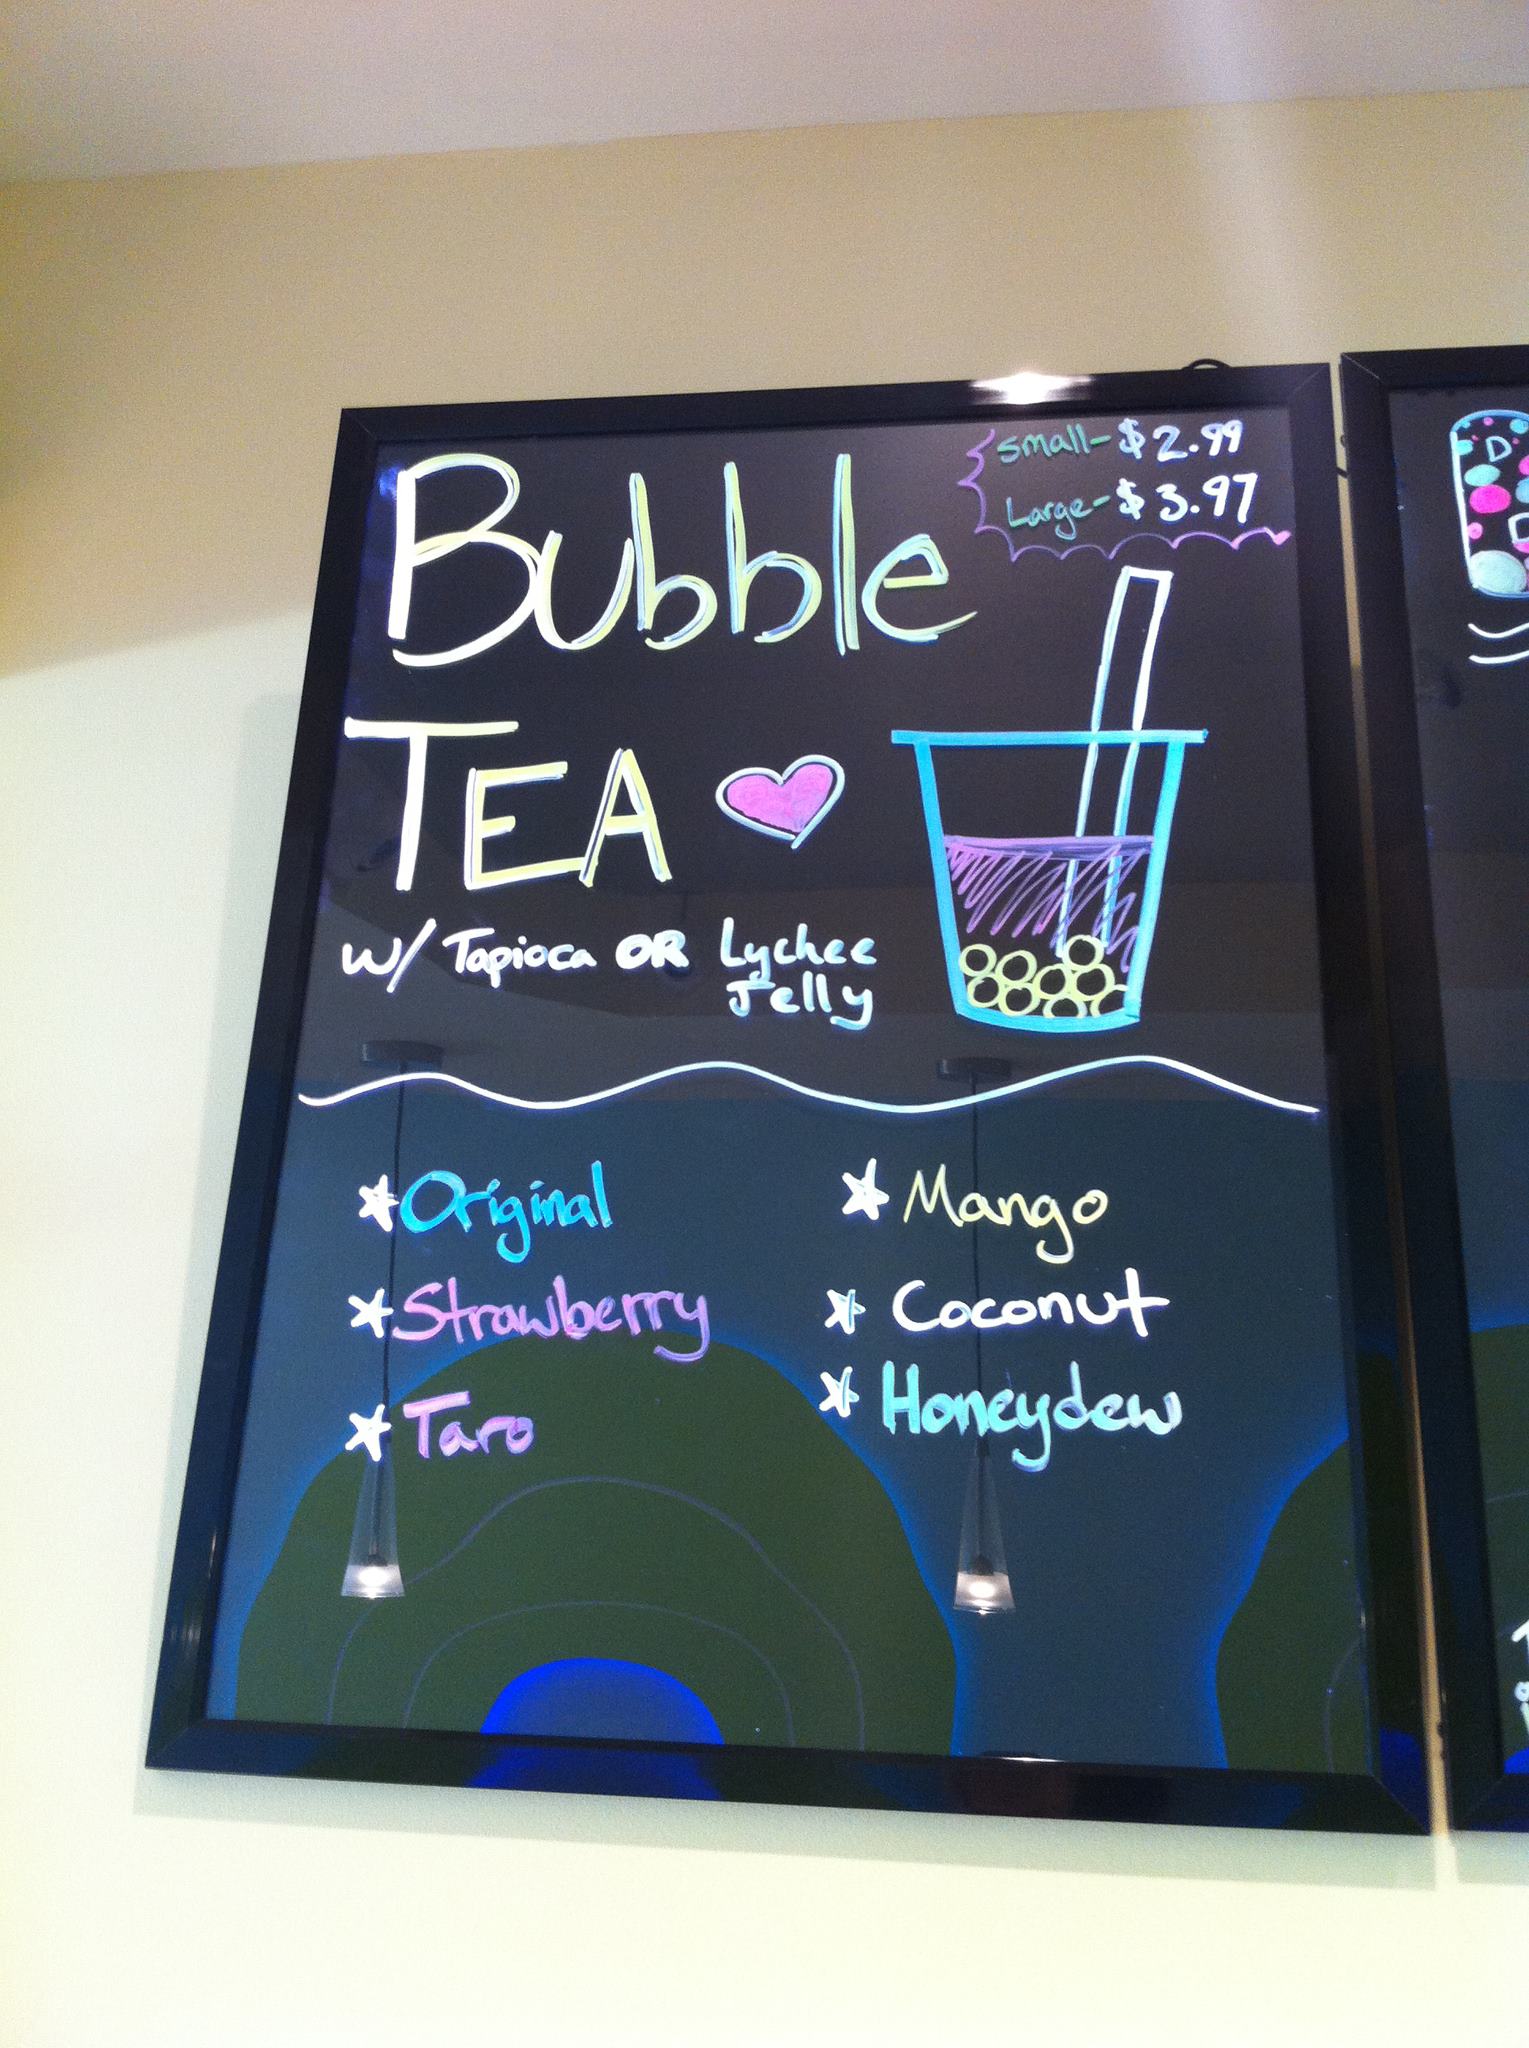 Bubble
Small- $2.99
Large- $3.97
TEA
w/ Tapioca OR Lychee
Jelly
Original
Strawberry
Taro
Mango
Coconut
Honeydew
D